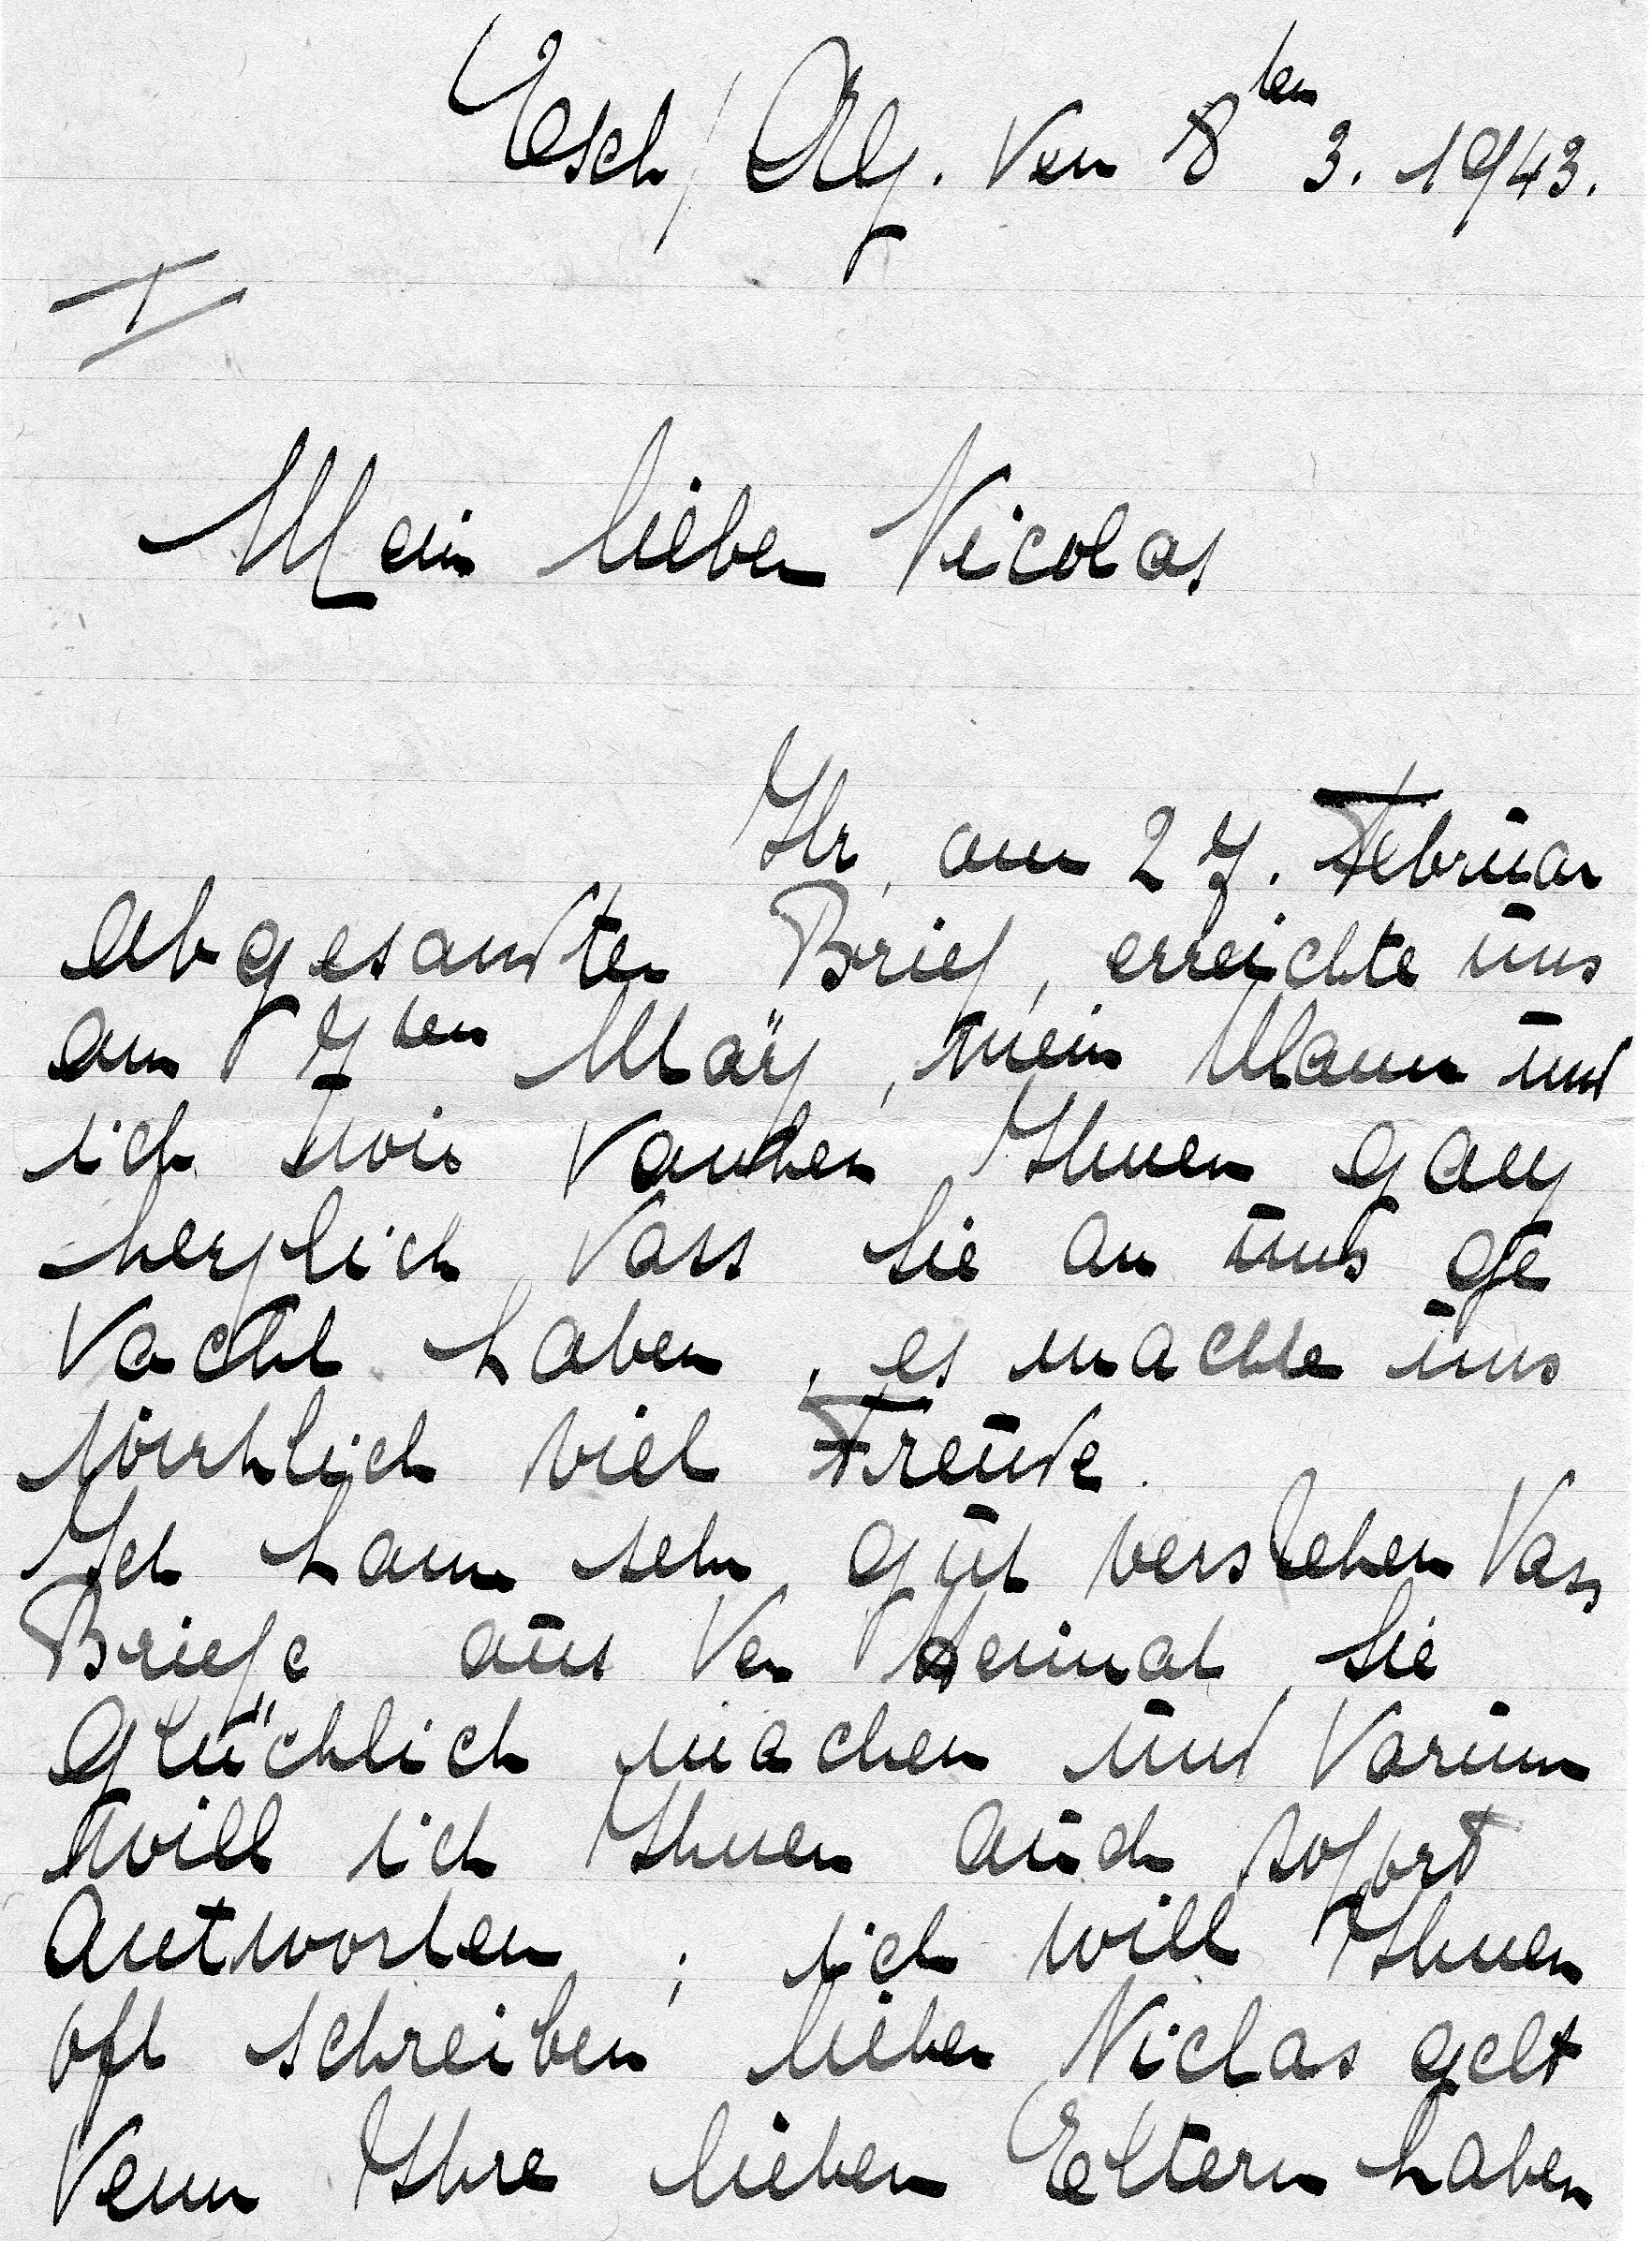 Esch/Alz. den 8ten 3. 1943.
I
Mein lieber Nicolas
Ihr, am 27. Februar
abgesandter Brief, erreichte uns
am 7ten März, mein Mann und
ich wir danken Ihnen ganz
herzlich dass Sie an uns ge
dacht haben, es machte uns
wirklich viel Freude.
Ich kann sehr gut verstehen dass
Briefe aus der Heimat Sie
glücklich machen und darum
will ich Ihnen auch sofort
Antworten; ich will Ihnen
oft schreiben lieber Niclas gelt
denn Ihre lieben Eltern haben